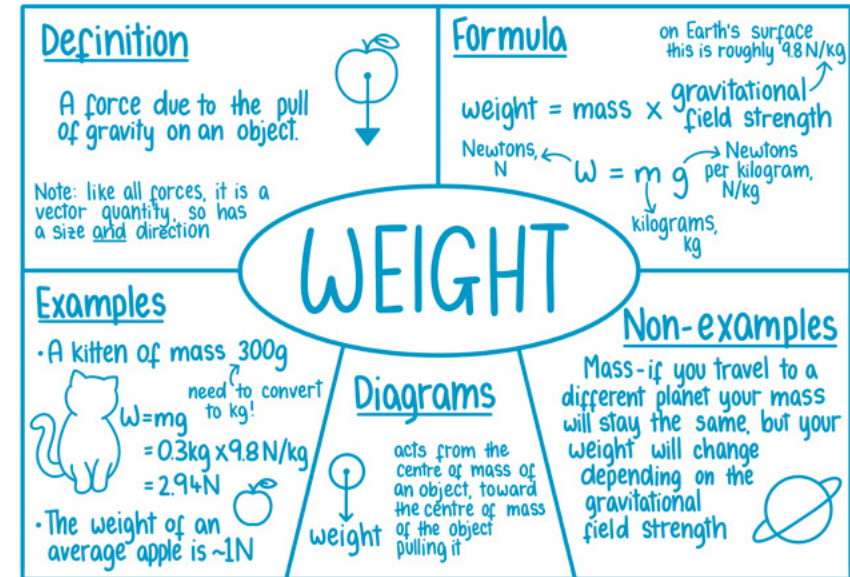 Definition
A force due to the pull
of gravity on an object.
Note: like all forces, it is a
vector quantity, so has
a size and direction
Formula
on Earth's surface
this is roughly 9.8 N/kg
weight = mass x gravitational
field strength
Newtons,
N
W = m g
Newtons
per kilogram,
N/kg
kilograms,
kg
WEIGHT
Examples
·A kitten of mass 300g
need to convert
to kg!
W=mg
= 0.3kg x 9.8 N/kg
= 2.94N
·The weight of an
average apple is ~1N
Diagrams
weight
acts from the
centre of mass of
an object, toward
the centre of mass
of the object
pulling it
Non-examples
Mass-if you travel to a
different planet your mass
will stay the same, but your
weight will change
depending on the
gravitational
field strength